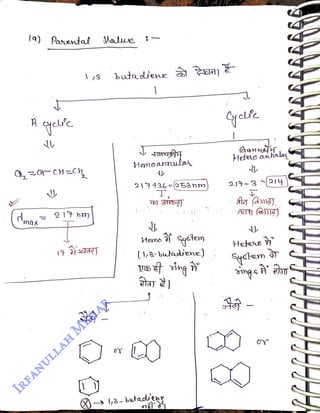 (a) Parental Value :-
1,3 butadiene को देखना है
A cyclic
Cyclic
CH₂=CH-CH=CH₂
λmax = 217 nm
17 में खतरा
समचक्रीय
Homoannular
217+36=253nm
का आंकड़ा
Homo में System
(1,3-butadiene)
एक ही ring में
होता है।
Hetero annular
217-3=214
Hetero में
System दो
rings में होगा
जैसे -
जैसे -
or
or
→ 1,3-butadiene
नहीं है
IRFANULLAH MEHAR